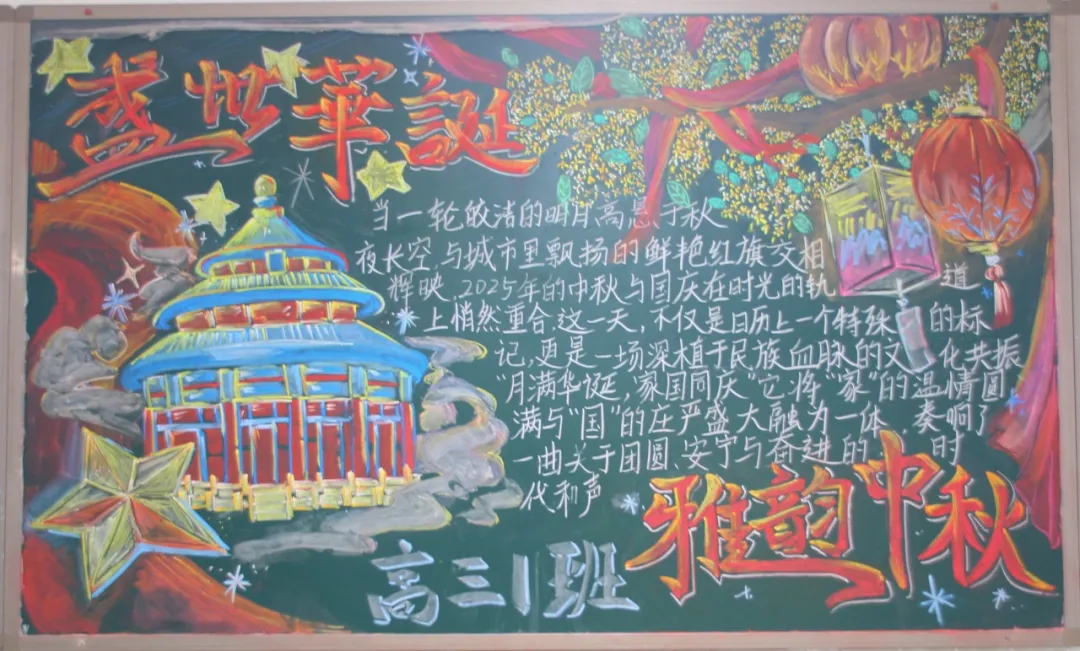 盛世華誕
当一轮皎洁的明月高悬于秋
夜长空，与城市里飘扬的鲜艳红旗交相
辉映，2025年的中秋与国庆在时光的轨道
上悄然重合。这一天，不仅是日历上一个特殊的标
记，更是一场深植于民族血脉的文化共振
"月满华诞，家国同庆"它将"家"的温情圆
满与"国"的庄严盛大融为一体，奏响了
一曲关于团圆、安宁与奋进的时
代和声
雅韵中秋
高三1班